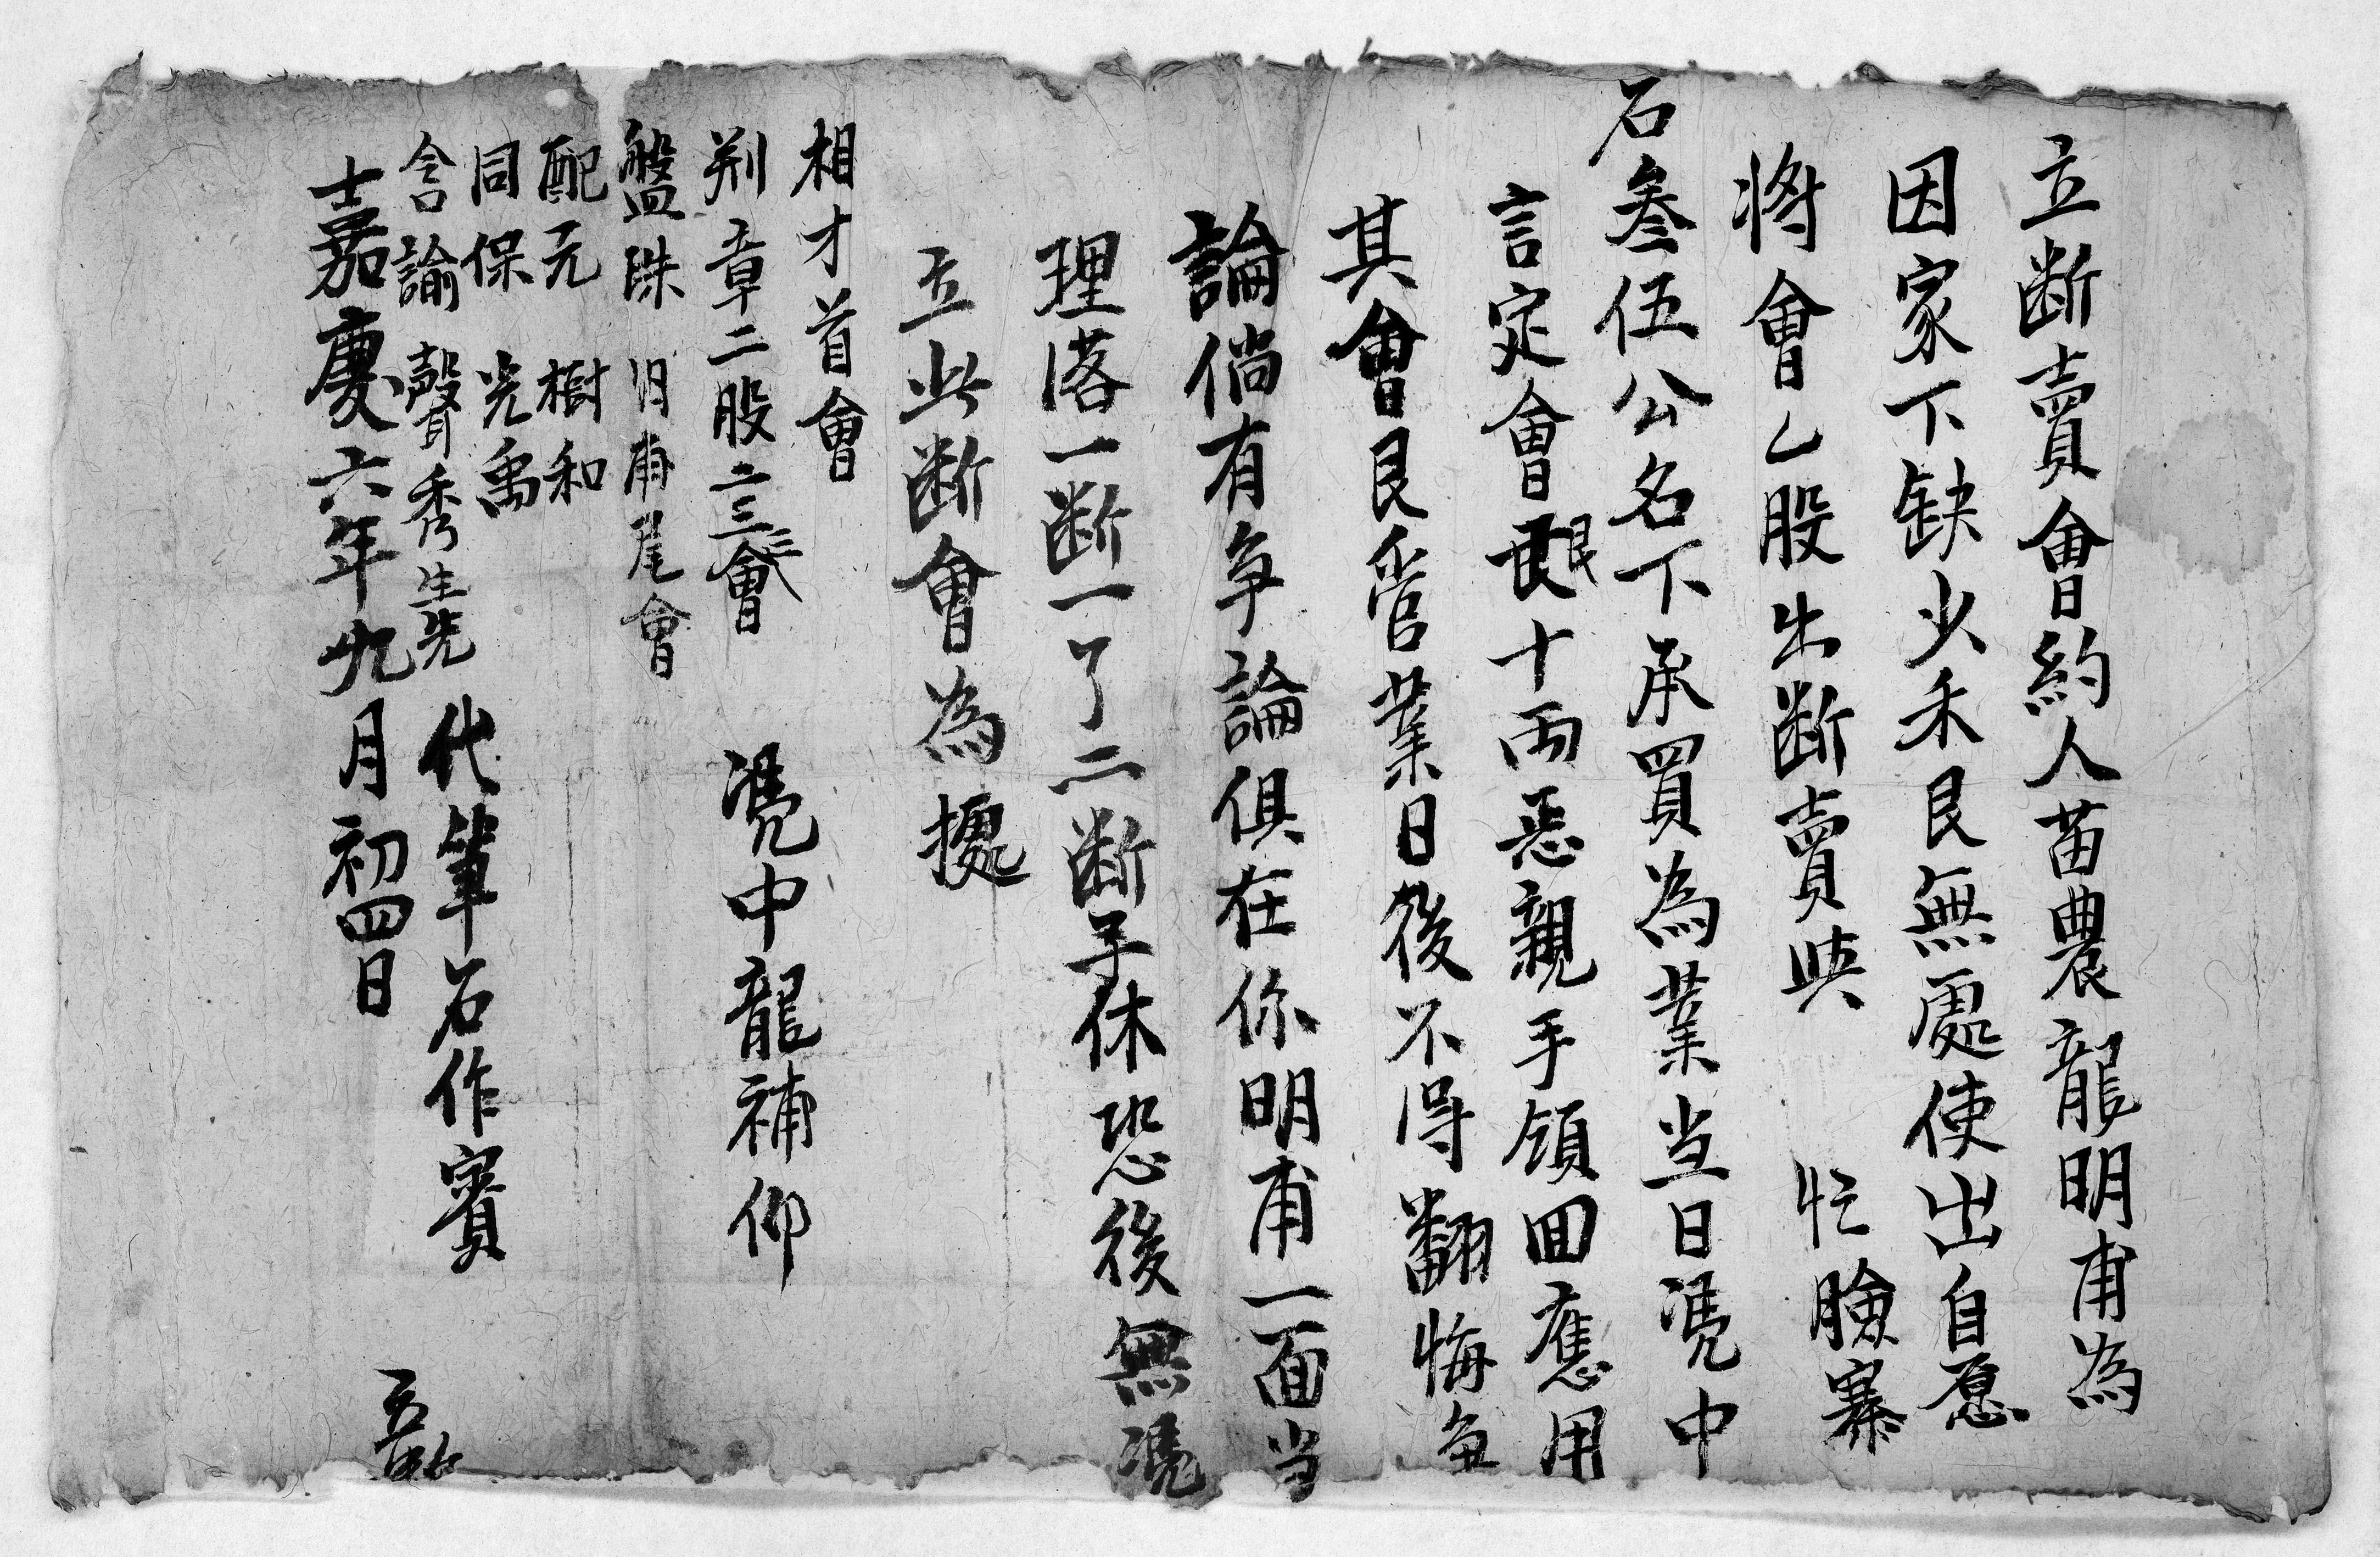 立断賣會約人苗農龍明甫為
因家下缺少禾艮無處使出自愿
將會乙股出断賣與 忙臉寨
石叄伍公名下承買為業当日凭中
言定會艮十両恶親手領回應用
其會艮管業日後不得翻悔争
論倘有争論俱在你明甫一面当
理落一断一了二断子休恐後無凴
立此断會為擄
相才首會
荆章二股二三會 凴中龍補仰
盤珠 明甫尾會
配元 樹和
同保 光禹
含諭 聲秀 生先 代筆石作賓
嘉慶六年九月初四日